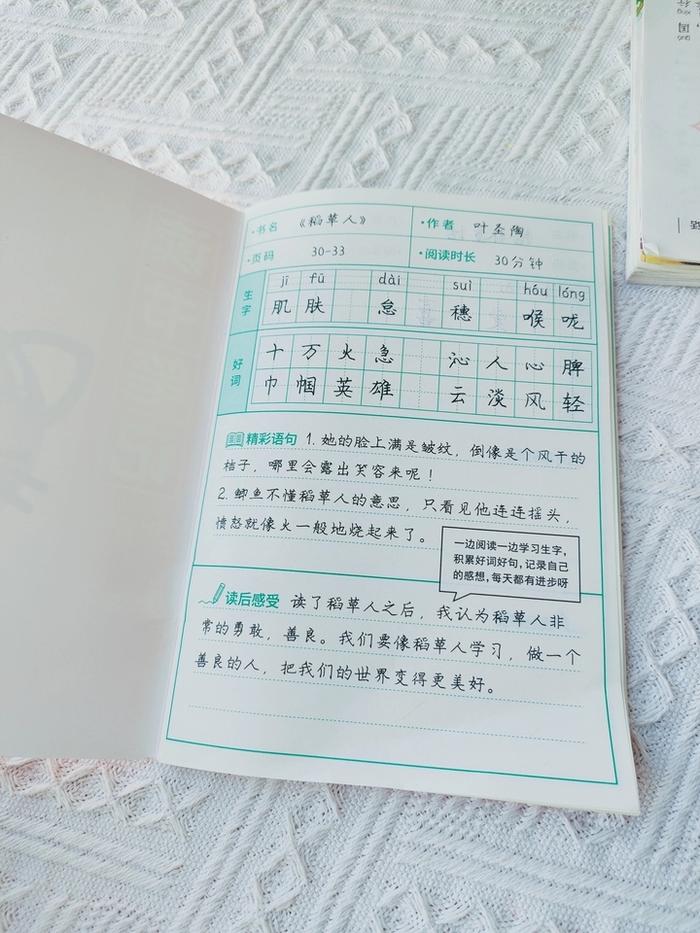 ·书名 《稻草人》 ·作者 叶圣陶
·页码 30-33 ·阅读时长 30分钟
jī fū dài suì hóu lóng
生字 肌肤 怠 穗 喉咙
好词 十万火急 沁人心脾
巾帼英雄 云淡风轻
精彩语句 1.她的脸上满是皱纹，倒像是个风干的
桔子，哪里会露出笑容来呢！
2.鲫鱼不懂稻草人的意思，只看见他连连摇头，
愤怒就像火一般地烧起来了。
一边阅读一边学习生字，
积累好词好句，记录自己
的感想，每天都有进步呀
读后感受 读了稻草人之后，我认为稻草人非
常的勇敢，善良。我们要像稻草人学习，做一个
善良的人，把我们的世界变得更美好。